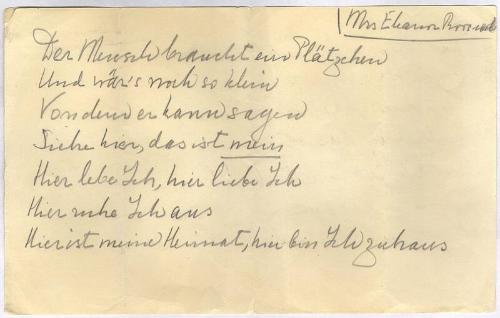 Mrs Eleanor Roosevelt
Der Mensch braucht ein Plätzchen
Und wär's noch so klein
Von dem er kann sagen
Siehe hier, das ist mein
Hier lebe Ich, hier liebe Ich
Hier ruhe Ich aus
Hier ist meine Heimat, hier bin Ich zuhaus